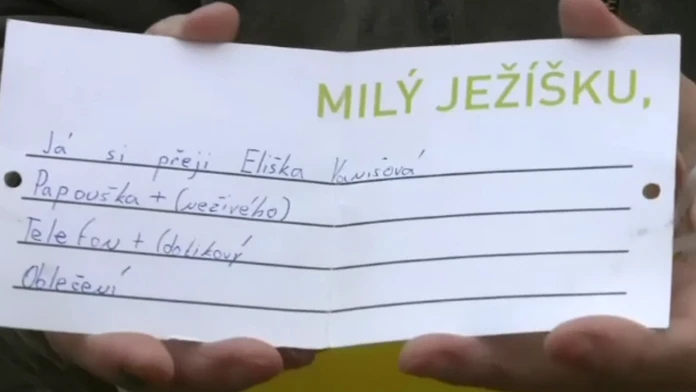 MILÝ JEŽÍŠKU,
Já si přeji Eliška Vanišová
Papouška + (neživého)
Telefon + (dotikový
Oblečení